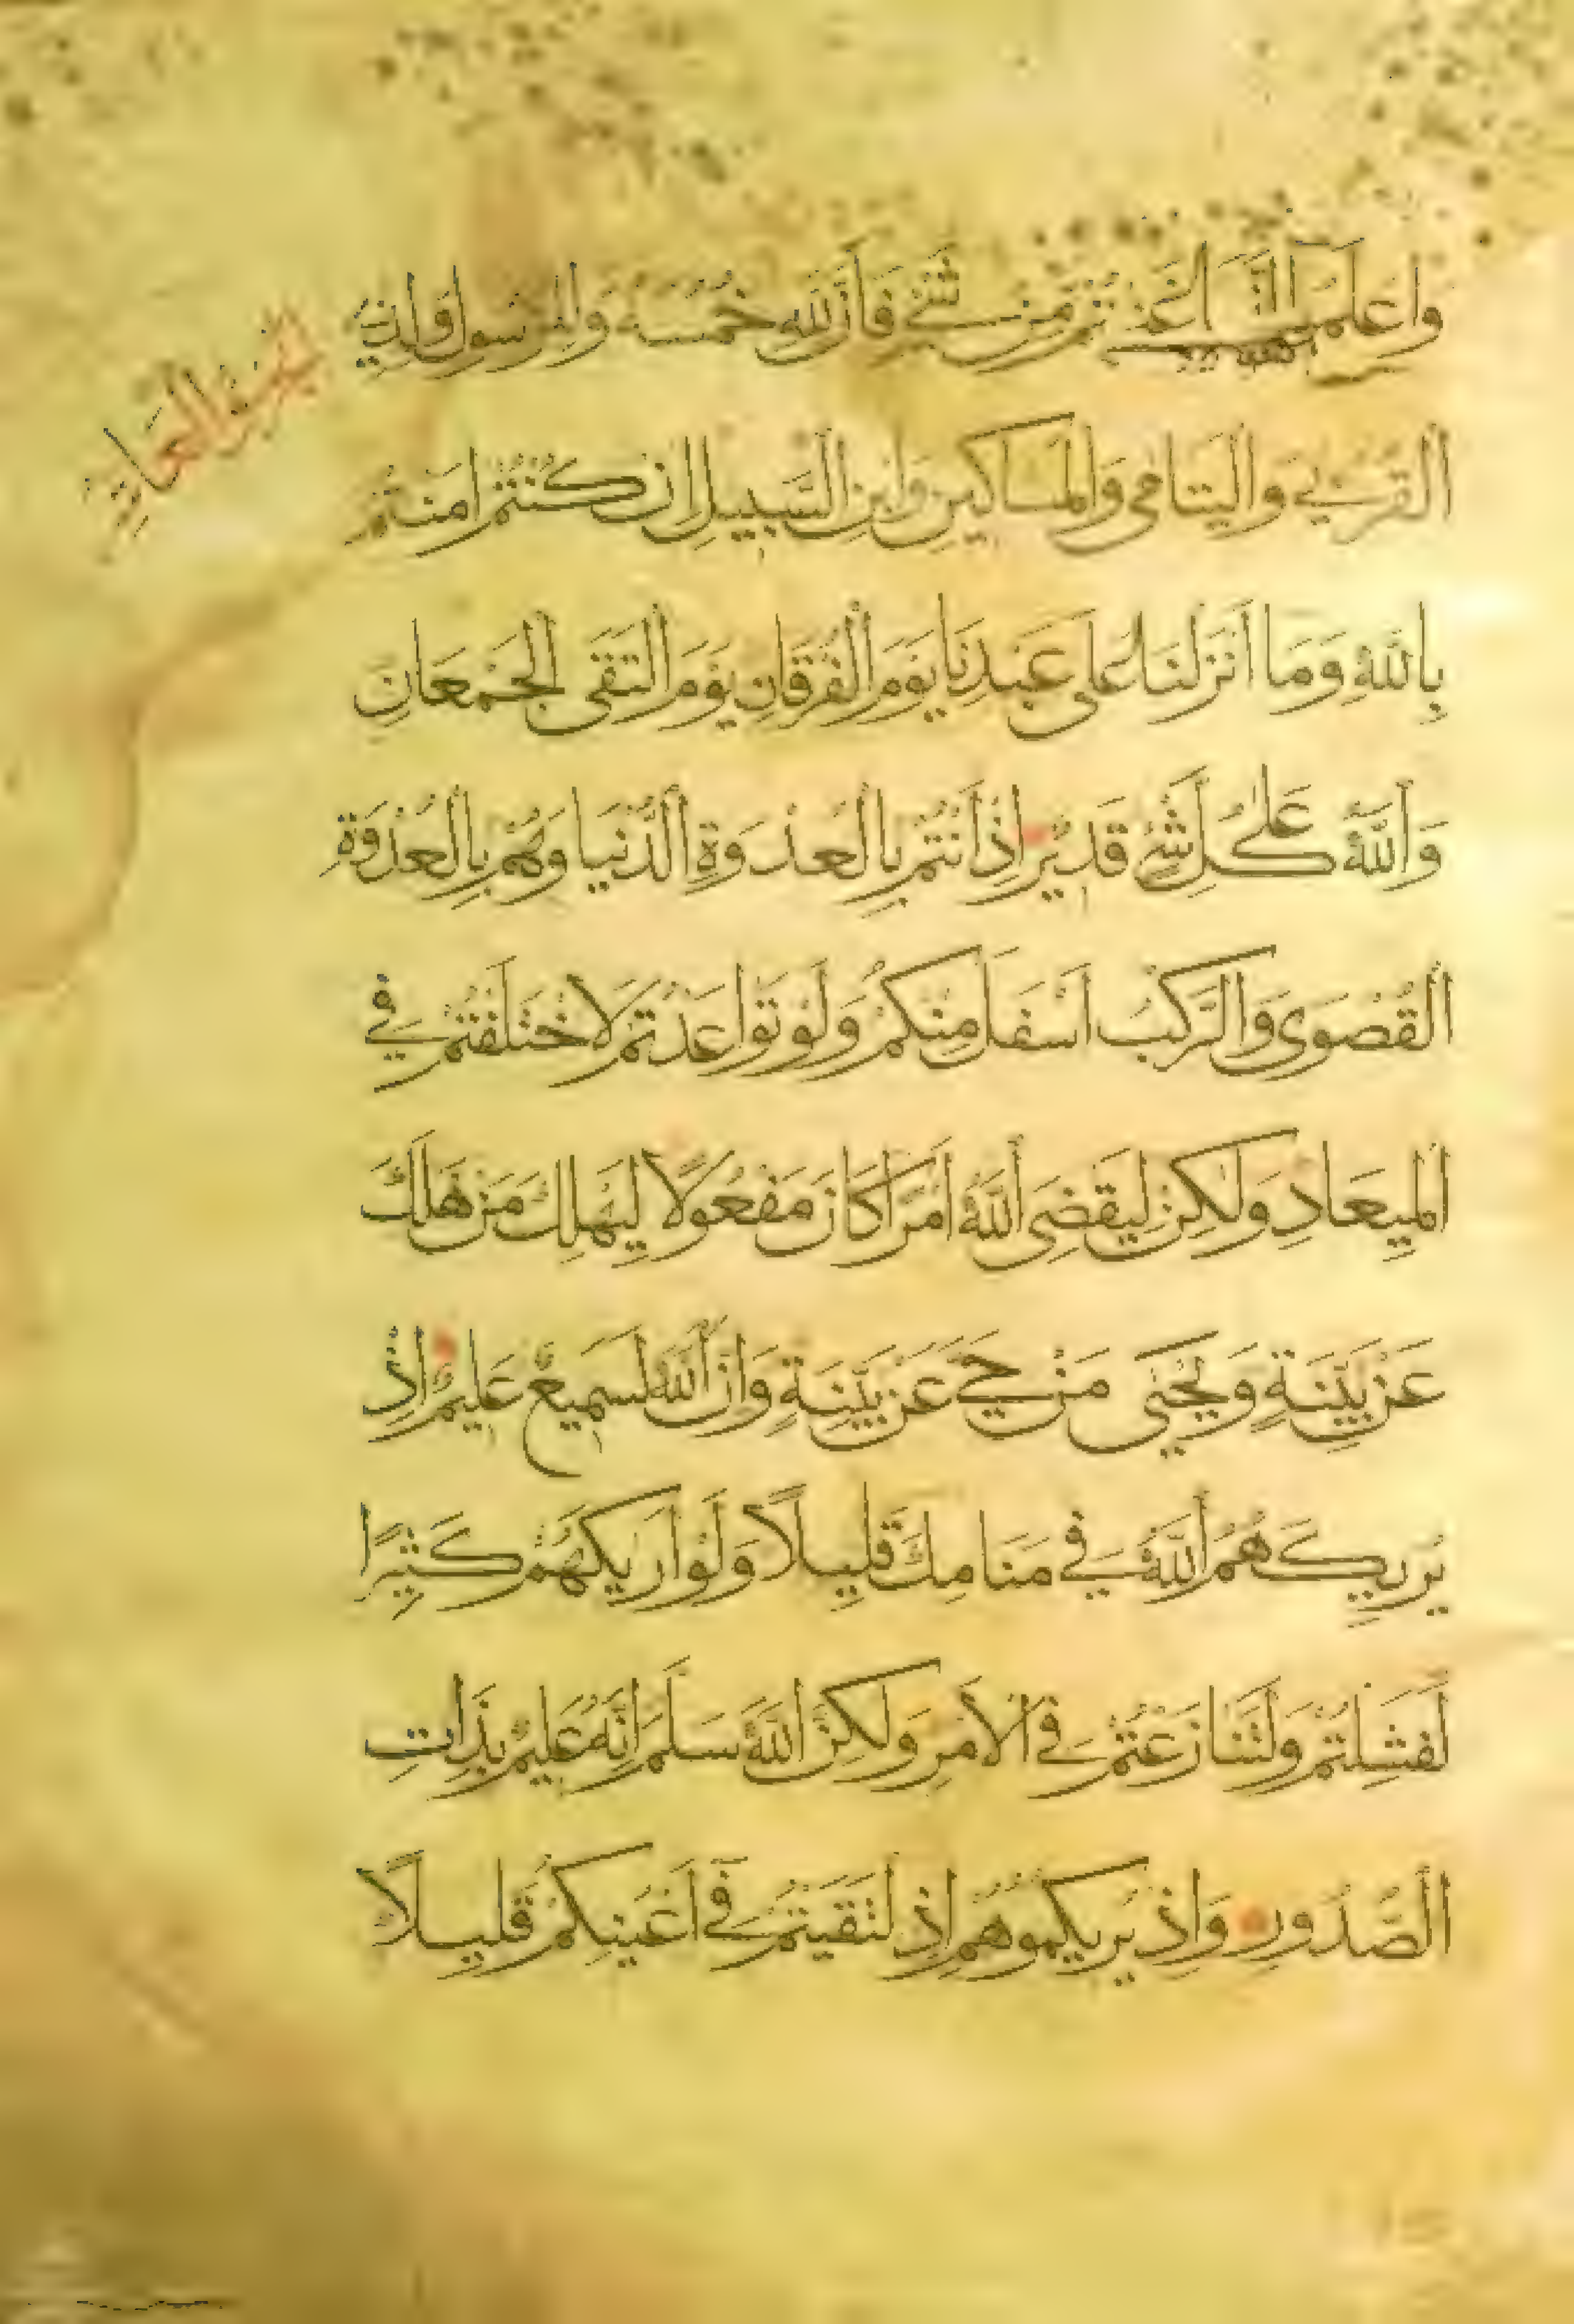 وَاعْلَمُوا أَنَّمَا غَنِمْتُمْ مِنْ شَيْءٍ فَأَنَّ لِلَّهِ خُمُسَهُ وَلِلرَّسُولِ وَلِذِي
الجزء العاشر
الْقُرْبَى وَالْيَتَامَى وَالْمَسَاكِينِ وَابْنِ السَّبِيلِ اِنْ كُنْتُمْ اٰمَنْتُمْ
بِاللَّهِ وَمَا اَنْزَلْنَا عَلَى عَبْدِنَا يَوْمَ الْفُرْقَانِ يَوْمَ الْتَقَى الْجَمْعَانِ
وَاللَّهُ عَلَى كُلِّ شَيْءٍ قَدِيرٌ اِذْ اَنْتُمْ بِالْعُدْوَةِ الدُّنْيَا وَهُمْ بِالْعُدْوَةِ
الْقُصْوَى وَالرَّكْبُ اَسْفَلَ مِنْكُمْ وَلَوْ تَوَاعَدْتُمْ لَاخْتَلَفْتُمْ فِي
الْمِيعَادِ وَلَكِنْ لِيَقْضِيَ اللَّهُ اَمْرًا كَانَ مَفْعُولًا لِيَهْلِكَ مَنْ هَلَكَ
عَنْ بَيِّنَةٍ وَيَحْيَى مَنْ حَيَّ عَنْ بَيِّنَةٍ وَاِنَّ اللَّهَ لَسَمِيعٌ عَلِيمٌ اِذْ
يُرِيكَهُمُ اللَّهُ فِي مَنَامِكَ قَلِيلًا وَلَوْ اَرَيكَهُمْ كَثِيرًا
لَفَشِلْتُمْ وَلَتَنَازَعْتُمْ فِي الْاَمْرِ وَلَكِنَّ اللَّهَ سَلَّمَ اِنَّهُ عَلِيمٌ بِذَاتِ
الصُّدُورِ وَاِذْ يُرِيكُمُوهُمْ اِذِ لْتَقَيْتُمْ فِي اَعْيُنِكُمْ قَلِيلًا